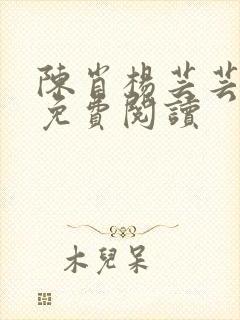 陳肖楊芸芸
免費閱讀
木兒呆